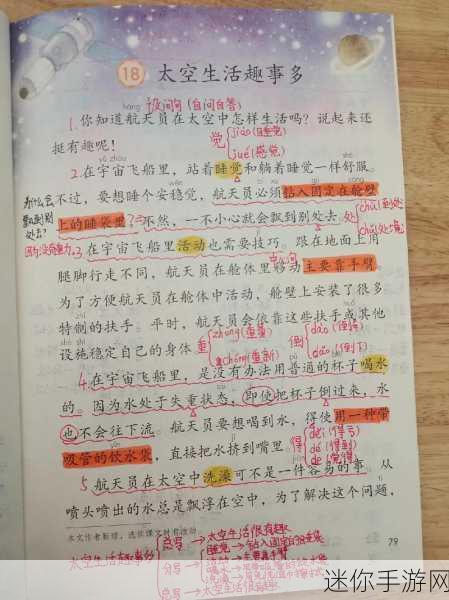 18 太空生活趣事多
háng 设问句(自问自答)
1.你知道航天员在太空中怎样生活吗?说起来还
挺有趣呢!
觉 jiào(睡觉)
jué(感觉)
yǔ zhòu
2.在宇宙飞船里,站着睡觉和躺着睡觉一样舒服。
不过,要想睡个安稳觉,航天员必须钻入固定在舱壁
上的睡袋里。不然,一不小心就会飘到别处去。
为什么会
飘到别
处去?
处 chù(到处)
3在宇宙飞船里活动也需要技巧。跟在地面上用
腿脚行走不同,航天员在舱体里移动主要靠手臂。
为了方便航天员在舱体中活动,舱壁上安装了很多
特制的扶手。平时,航天员会依靠这些扶手或其他
设施稳定自己的身体。
重 zhòng(重量)
chóng(重新)
倒 dào(倒立)
dǎo(倒下)
4.在宇宙飞船里,是没有办法用普通的杯子喝水
的。因为水处于失重状态,即使把杯子倒过来,水
也不会往下流。航天员要想喝到水,得使用一种带
吸管的饮水袋,直接把水挤到嘴里。
得 děi
dé(得到)
de
5.航天员在太空中洗澡可不是一件容易的事。从
喷头喷出的水总是飘浮在空中,为了解决这个问题,
本文作者靳锴,选作课文时有改动。
79
太空生活趣事多
总写→太空生活很有趣
分写
睡觉→钻入固定的睡袋
总写→太空生活很有趣
迷你手游网